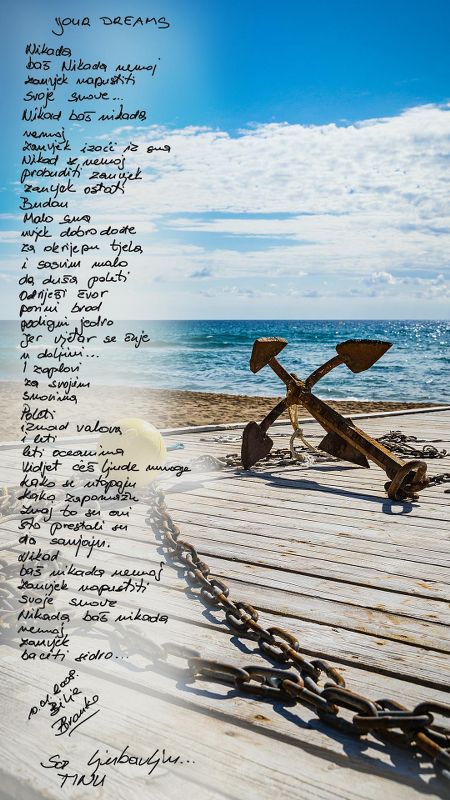 YOUR DREAMS
Nikada
baš Nikada nemoj
zauvjek napustiti
svoje snove...
Nikad baš nikada
nemoj
zauvjek izaći iz sna
Nikad se nemoj
probuditi zauvjek
zauvjek ostati
Budan
Malo sna
uvjek dobro dođe
za okrijepu tjela
i sasvim malo
da duša poleti
Odriješi čvor
porini brod
podigni jedro
jer vjetar se čuje
u daljini...
I zaplovi
za svojim
snovima
Poleti
iznad valova
i leti
leti oceanima
Vidjet ćeš ljude mnoge
kako se utapaju
kako zapomažu
znaj to su oni
što prestali su
da sanjaju.
Nikad
baš nikada nemoj
zauvjek napustiti
svoje snove
Nikada baš nikada
nemoj
zauvjek
baciti sidro...
2008.
Branko
Sa ljubavlju...
TINU